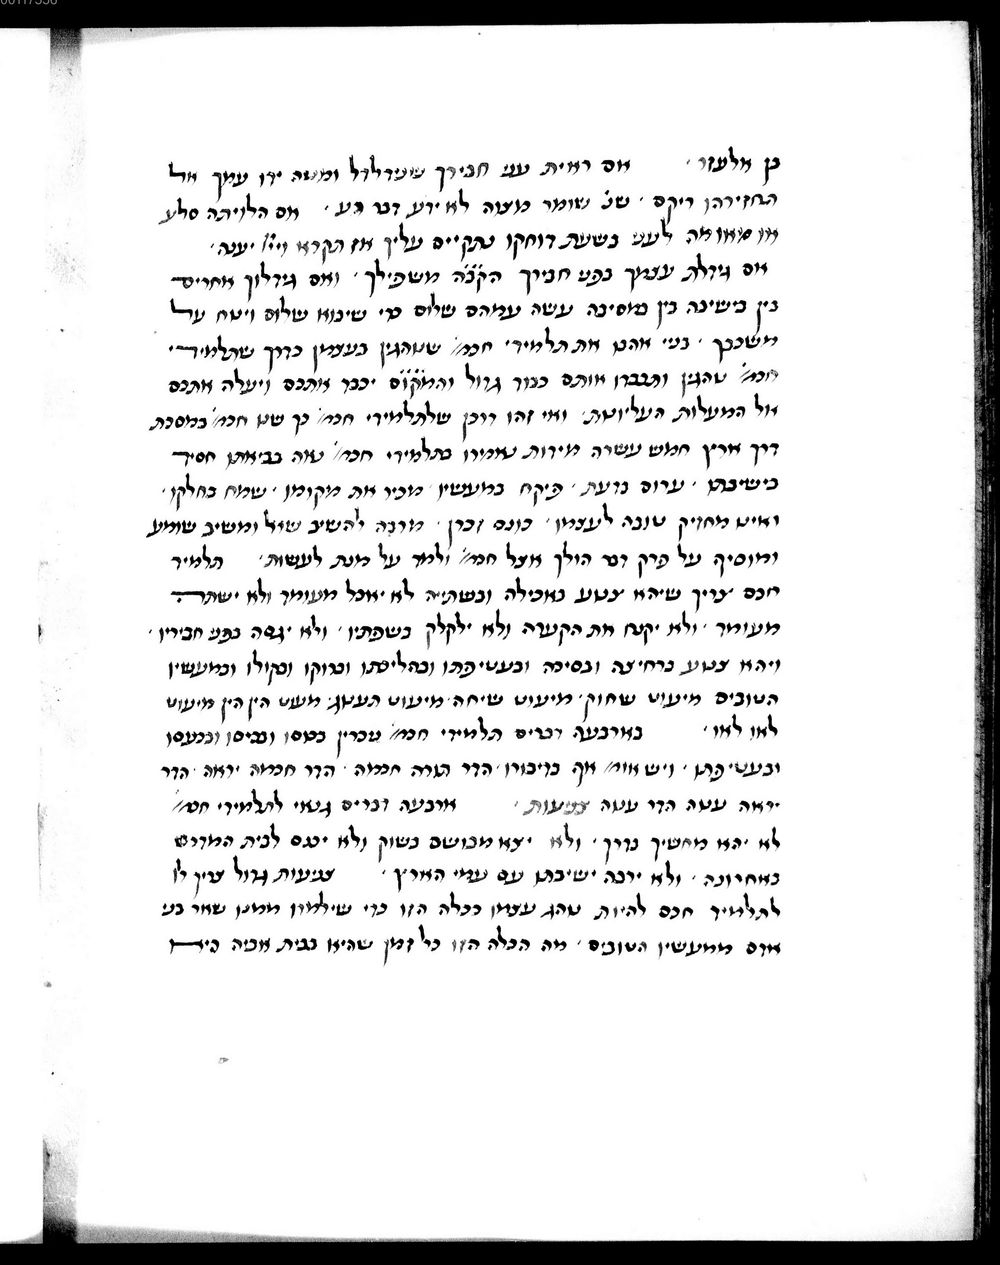 בן אלעזר · אם ראית עני חבירך שנידלדל ומטה ידו עמך אל
תחזירהו ריקם · שנ' שומר מצוה לא ידע דבר רע · אם הלויתה סלע
או מאומה לעני בשעת דוחקו נתקיים עליך אז תקרא ויי' יענה ·
אם גידלת עצמך בפני חבירך הקב"ה משפילך · ואם גידלוך אחרים
בין בישיבה בין במסיבה עשה עמהם שלום כדי שיבוא שלום וינוח על
משכבך · בני אהבו את תלמידי חכמ' שנוהגין בעצמן כדרך שתלמידי
חכמ' נוהגין ותכבדו אותם כבוד גדול והמקום יכבד אתכם ויעלה אתכם
אל המעלות העליונות · ואי זהו דרכן שלתלמידי חכמ' כך שנו חכמ' במסכת
דרך ארץ חמש עשרה מידות נאמרו בתלמידי חכמ' נאה בביאתו חסיד
בישיבתו · ערום בדעת · פיקח במעשיו · מכיר את מקומו · שמח בחלקו ·
ואינו מחזיק טובה לעצמו · כונס זכרן · מרבה להשיב שואל ומשיב שומע
ומוסיף על פרק דבר הולך אצל חכמ' ולמד על מנת לעשות · תלמיד
חכם צריך שיהא צנוע באכילה ובשתיה לא יאכל מעומד ולא ישתה
מעומד · ולא יקנח את הקערה ולא ילקלק בשפתיו · ולא יגסה בפני חבירו ·
ויהא צנוע ברחיצה ובסיכה ובעטיפתו ובהליכתו וברוקו ובקולו ובמעשיו
הטובים מיעוט שחוק · מיעוט שיחה · מיעוט תענוג · מעט הין הין מיעוט
לאו לאו · בארבעה דברים תלמידי חכמ' ניכרין בכוסו ובכיסו ובכעסו
ובעטיפתו · ויש אומ' אף בדיבורו · הדר תורה חכמה · הדר חכמה יראה · הדר
יראה ענוה הדר ענוה צניעות · ארבעה דברים גנאי לתלמידי חכמ'
לא יהא מחשיך בדרך · ולא יצא מבושם בשוק ולא יכנס לבית המדרש
באחרונה · ולא ירבה ישיבתו עם עמי הארץ · צניעות גדול צריך לו
לתלמיד חכם להיות נוהג עצמו ככלה הזו כדי שילמדו ממנו שאר בני
אדם ממעשיו הטובים · מה הכלה הזו כל זמן שהיא בבית אביה היא